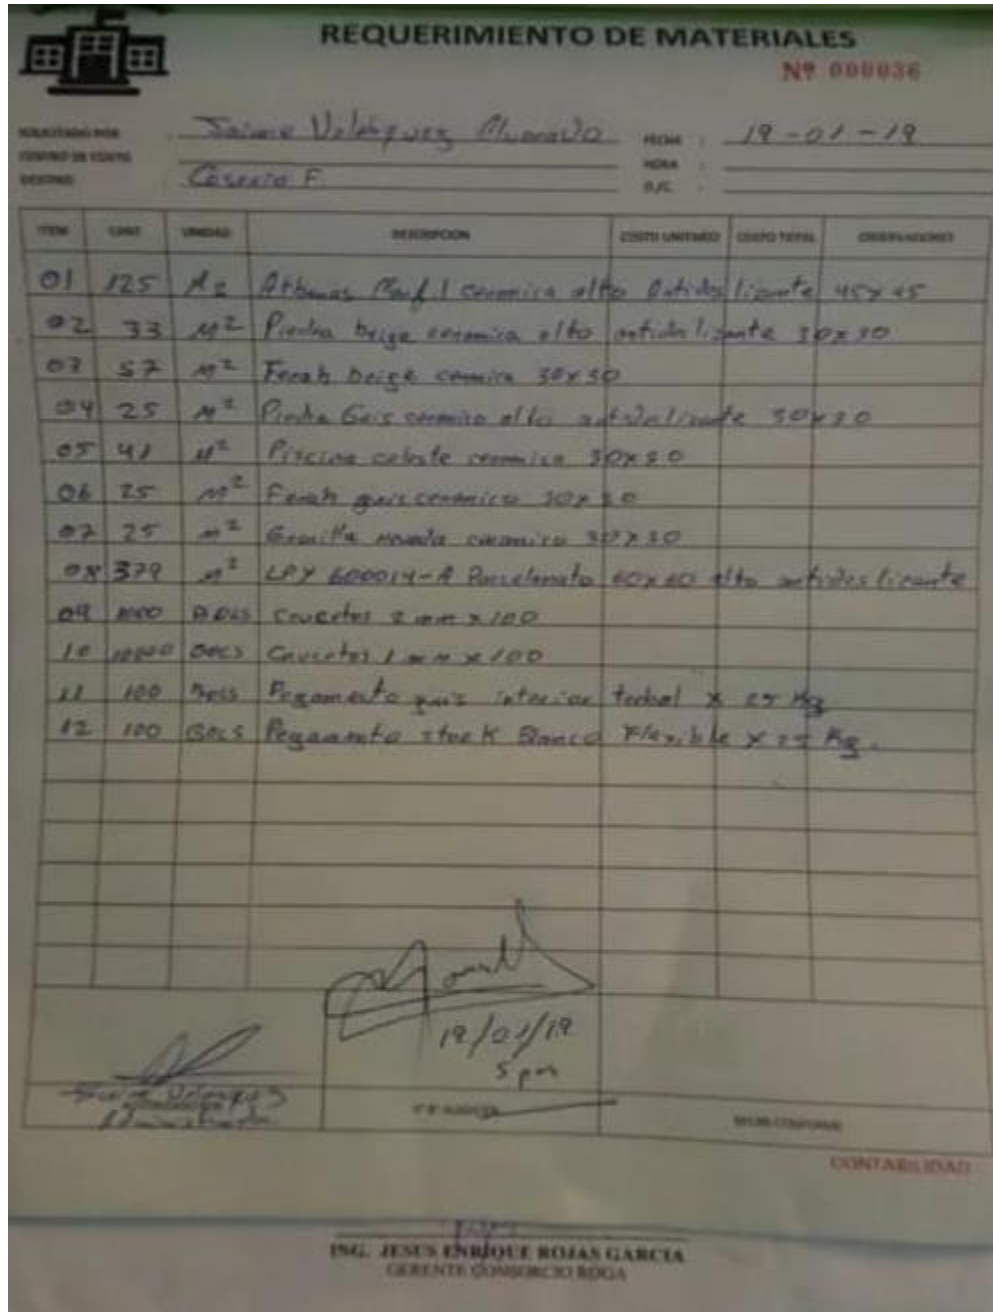 REQUERIMIENTO DE MATERIALES
Nº 000036
SOLICITADO POR : Jaime Velásquez Alvarado FECHA : 19-01-19
CENTRO DE COSTO HORA :
DESTINO: Caserio F. O/C :
ITEM CANT UNIDAD DESCRIPCION COSTO UNITARIO COSTO TOTAL OBSERVACIONES
01 125 M2 Marfil ceramica alto Antideslizante 45x45
02 33 M2 Piedra beige ceramica alto antideslizante 30x30
03 57 M2 Fenah beige ceramica 30x30
04 25 M2 Piedra Gris ceramico alto antideslizante 30x30
05 41 M2 Piscina celeste ceramica 30x30
06 25 m2 Fenah gris ceramico 30x30
07 25 m2 ceramico 30x30
08 379 m2 LPY 600014-A Porcelanato 60x60 alto antideslizante
09 Crucetas 2 mm x 100
10 Crucetas 1 mm x 100
11 100 Bols Pegamento gris interior x 25 Kg
12 100 Bols Pegamento Blanco Flexible x 25 Kg.
19/01/19
5 pm
Jaime Velasquez
CONTABILIDAD
ING. JESUS ENRIQUE ROJAS GARCIA
GERENTE CONSORCIO ROGA